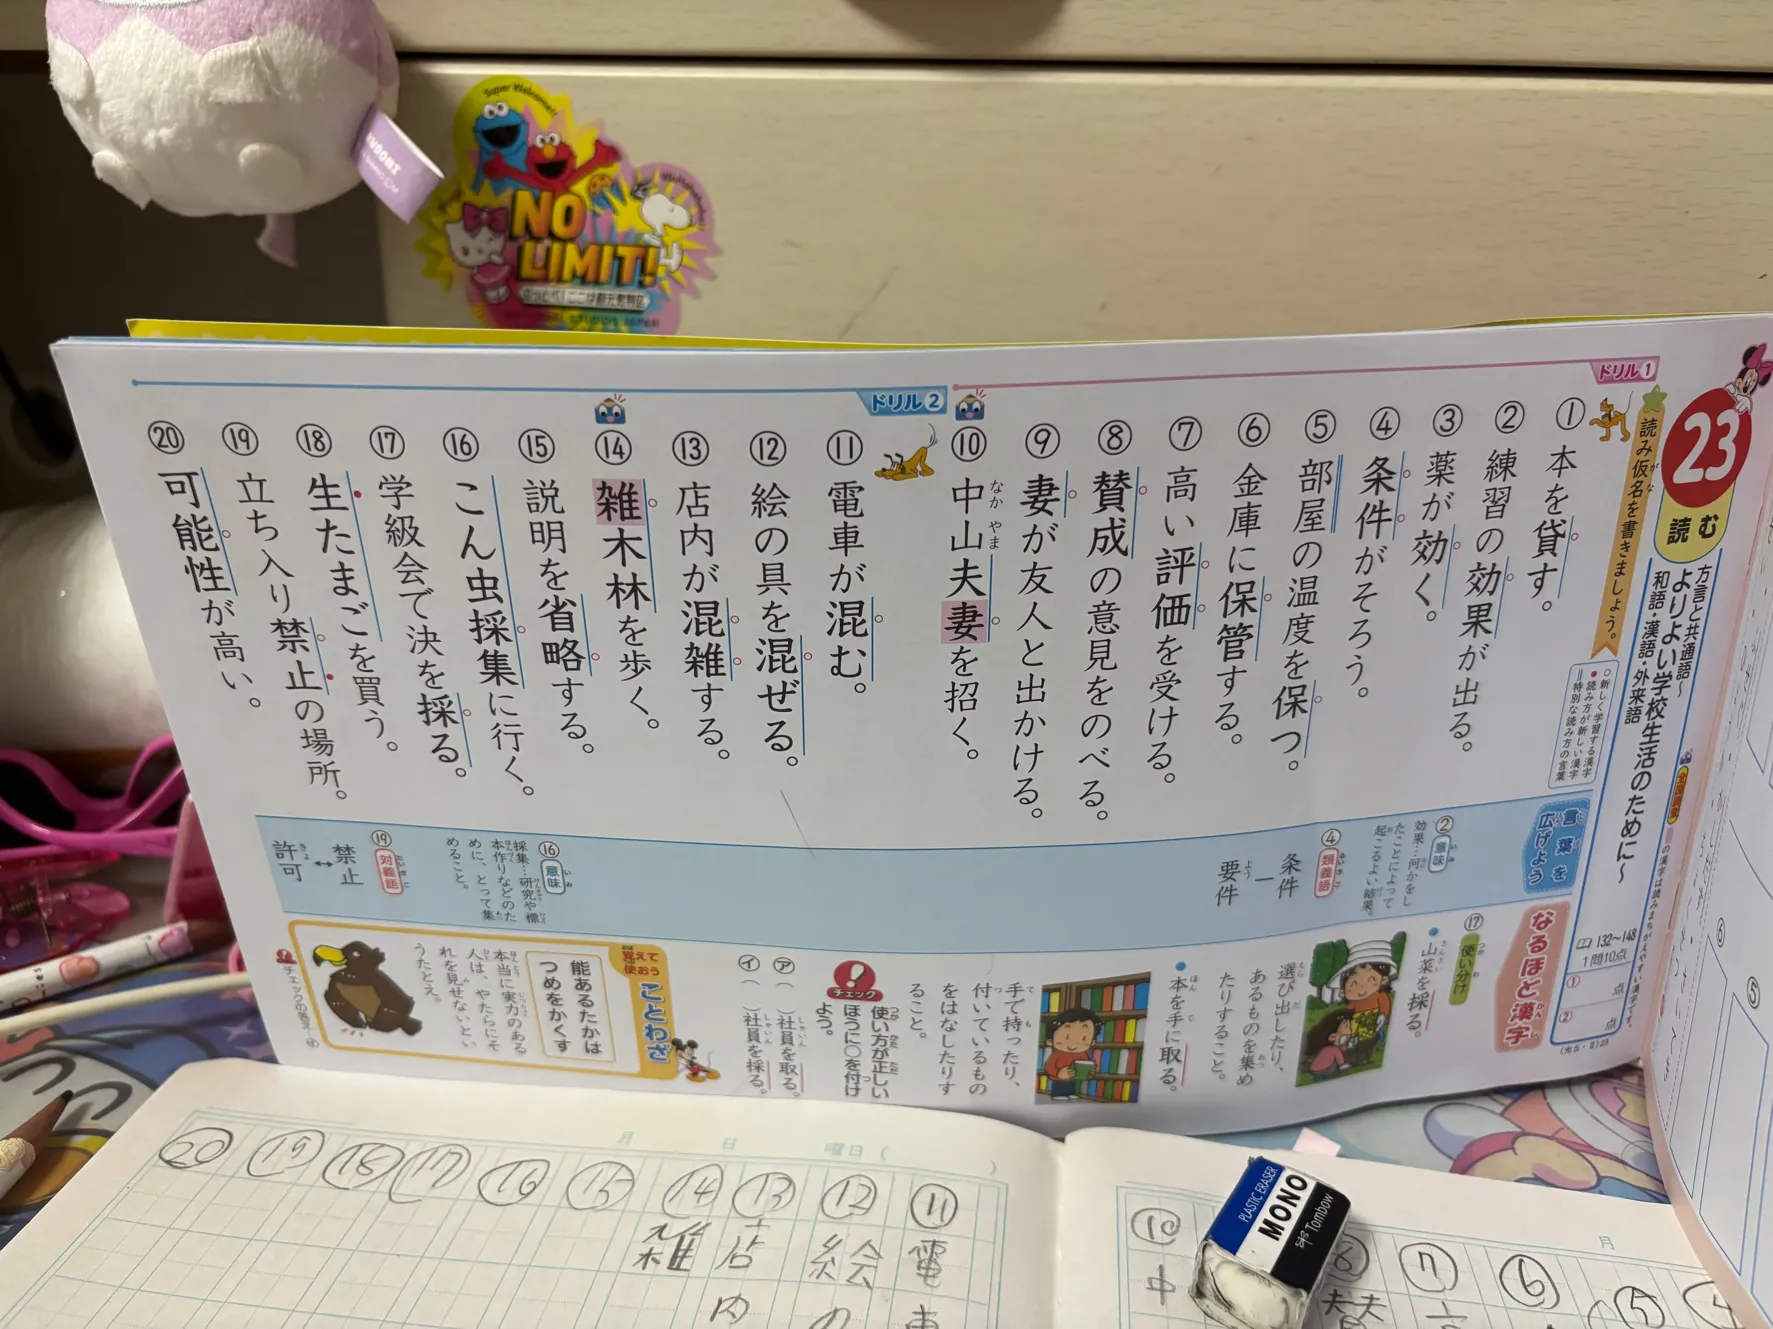 Super Welcome!!
NO
LIMIT!
23
読む
方言と共通語～
よりよい学校生活のために～
和語・漢語・外来語
132～148
1問10点
① 点
② 点
読み仮名を書きましょう。
○新しく学習する漢字
●読み方が新しい漢字
∥特別な読み方の言葉
ドリル1
① 本を貸す。
② 練習の効果が出る。
③ 薬が効く。
④ 条件がそろう。
⑤ 部屋の温度を保つ。
⑥ 金庫に保管する。
⑦ 高い評価を受ける。
⑧ 賛成の意見をのべる。
⑨ 妻が友人と出かける。
⑩ 中山夫妻を招く。
なか やま
ドリル2
⑪ 電車が混む。
⑫ 絵の具を混ぜる。
⑬ 店内が混雑する。
⑭ 雑木林を歩く。
⑮ 説明を省略する。
⑯ こん虫採集に行く。
⑰ 学級会で決を採る。
⑱ 生たまごを買う。
⑲ 立ち入り禁止の場所。
⑳ 可能性が高い。
言葉を
広げよう
② 意味
効果…何かをし
たことによって
起こるよい結果。
④ 類義語
条件
要件
⑯ 意味
採集…研究や標
本作りなどのた
めに、とって集
めること。
⑲ 対義語
禁止
↔
許可
なるほど漢字
⑰ 使い分け
山菜を採る。
選び出したり、
あるものを集め
たりすること。
本を手に取る。
手で持ったり、
付いているもの
をはなしたりす
ること。
チェック
使い方が正しい
ほうに○を付け
よう。
㋐（ ）社員を取る。
㋑（ ）社員を採る。
覚えて
使おう
ことわざ
能あるたかは
つめをかくす
本当に実力のある
人は、やたらにそ
れを見せないとい
うたとえ。
チェックの答え…㋑
月 日 曜日（ ）
⑪ 電車
⑫ 絵の
⑬ 店内
⑭ 雑
⑮
⑯
⑰
⑱
⑲
⑳
月
⑤
⑥
⑦
⑩ 中
PLASTIC ERASER
MONO
Tombow